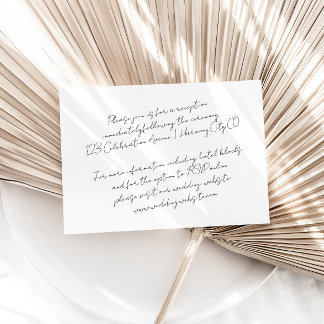 Please join us for a reception
immediately following the ceremony
123 Celebration Avenue | Harmony City, CO
For more information including hotel blocks
and for the option to RSVP online
please visit our wedding website
www.weddingwebsite.com